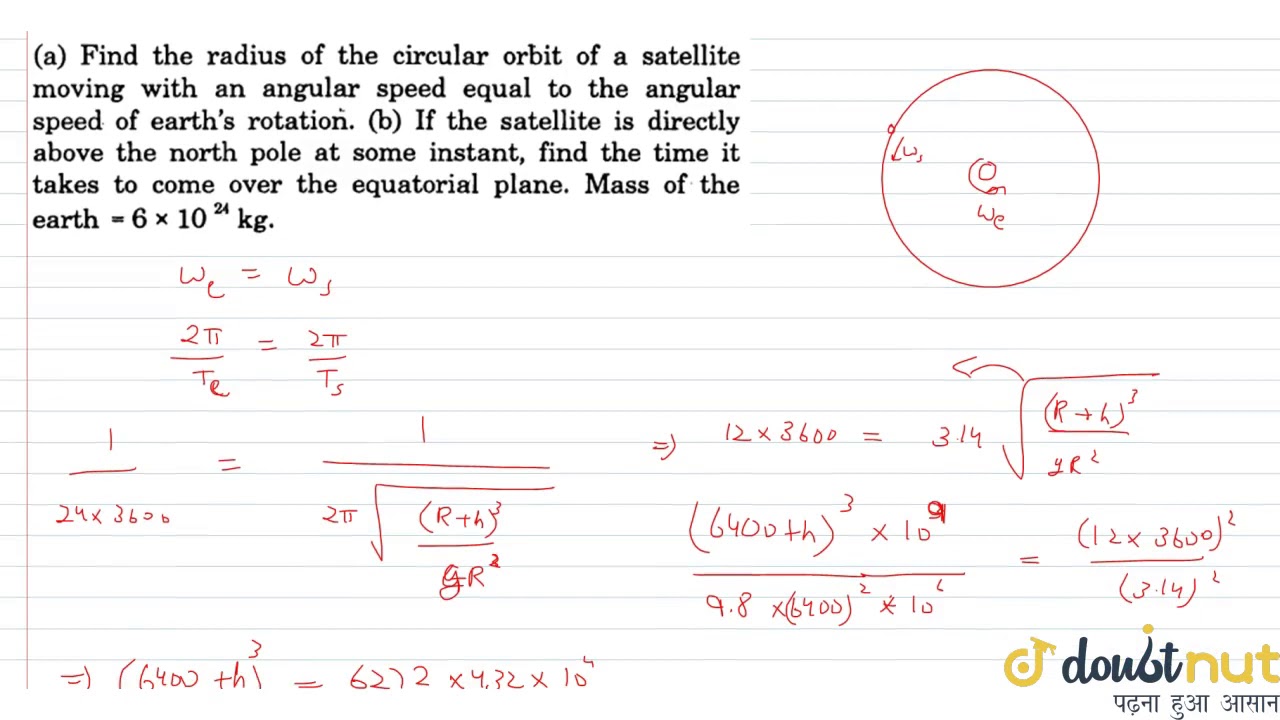 (a) Find the radius of the circular orbit of a satellite
moving with an angular speed equal to the angular
speed of earth's rotation. (b) If the satellite is directly
above the north pole at some instant, find the time it
takes to come over the equatorial plane. Mass of the
earth = 6 × 10²⁴ kg.
ωₛ
ωe
ωe = ωₛ
2π/Te = 2π/Tₛ
1/(24×3600) = 1/(2π√((R+h)³/gR²))
⇒) 12×3600 = 3.14 √((R+h)³/gR²)
(6400+h)³ × 10⁹ / 9.8 ×(6400)² × 10⁶ = (12 × 3600)²/(3.14)²
⇒) (6400 +h)³ = 6272 × 4.32 × 10⁴
doubtnut
पढ़ना हुआ आसान